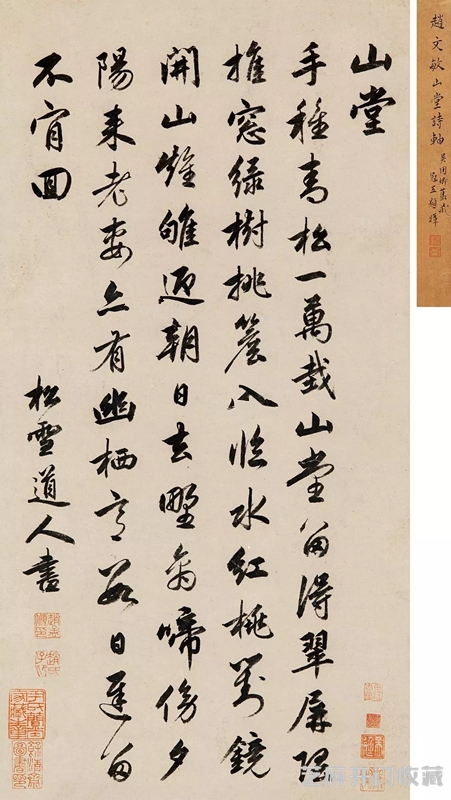 山堂
手種青松一萬栽山堂留得翠屏隈
推窓綠樹排簷入臨水紅桃對鏡
開山雉雊迎朝日去野禽啼傍夕
陽來老妻亦有幽栖意數日遲留
不肯回
松雪道人書
趙文敏山堂詩軸
吳用卿舊藏
收藏